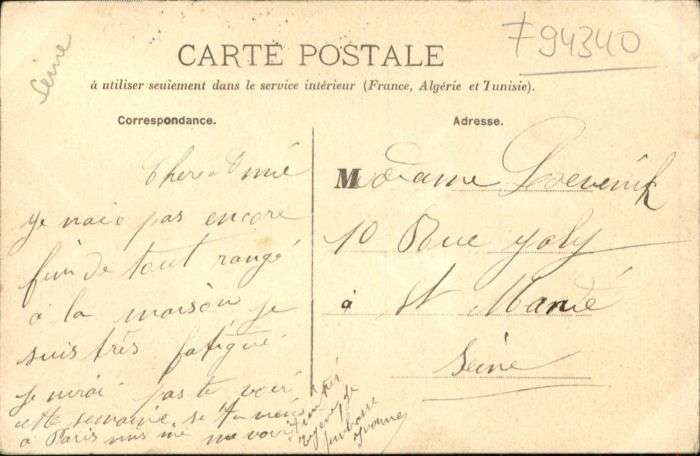 Seine
F94340
CARTE POSTALE
à utiliser seulement dans le service intérieur (France, Algérie et Tunisie).
Correspondance.
Adresse.
Chere Amié
Je naie pas encore
fini de tout rangé
à la maison je
suis très fatigué
je nirai pas te voir
cette semaine si tu
à Paris me voir
je
embrasse
Yvonne
Madame
10 Rue Joly
à St Mandé
Seine